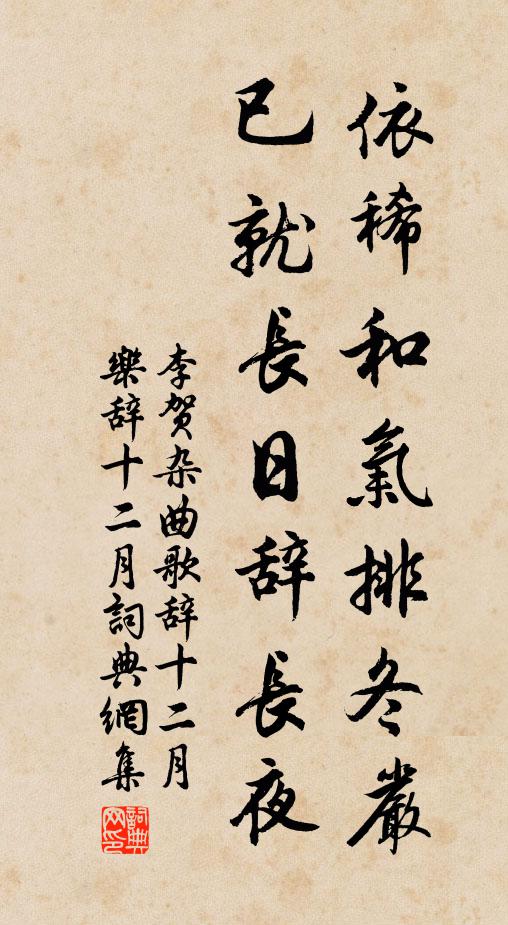 依稀和氣排冬嚴
已就長日辞長夜
李贺杂曲歌辞十二月
樂辞十二月詞典網集
詞典网印